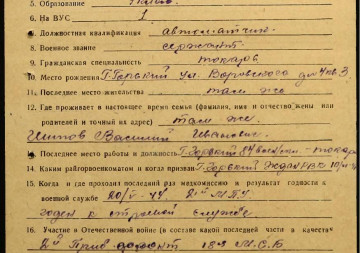 5. Образование
6. На ВУС 1
6. Должностная квалификация автоматчик
8. Военное звание сержант
9. Гражданская специальность токарь
10. Место рождения Г. Горький ул. Воровского дом 4 кв 3
11. Последнее место жительства там же
12. Где проживает в настоящее время семья (фамилия, имя и отчество жены или
родителей и точный их адрес) там же
Василий Иванович
Последнее место работы и должность Г. Горький токарь
14. Каким райгорвоенкоматом и когда призван Г. Горький
15. Когда и где проходил последний раз медкомиссию и результат годности к
военной службе 20/V-44
годен к строевой службе
16. Участие в Отечественной войне (в составе какой последней части и в качестве
2й Приб фронт